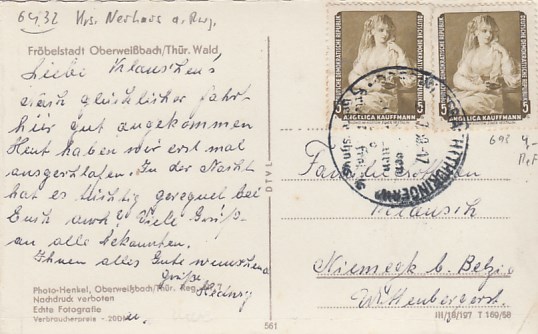 6432
Fröbelstadt Oberweißbach/Thür. Wald
Liebe
nach glücklicher Fahrt
hier gut angekommen
Heut haben wir erst mal
ausgeschlafen. In der Nacht
hat es tüchtig geregnet bei
Euch auch? Viele Grüße
an alle Bekannten.
Ihnen alles Gute wünschend
Grüße
Hedwig
Photo-Henkel, Oberweißbach/Thür.
Nachdruck verboten
Echte Fotografie
Verbraucherpreis
DTVL
561
DEUTSCHE DEMOKRATISCHE REPUBLIK
5
ANGELICA KAUFFMANN
5
DEUTSCHE DEMOKRATISCHE REPUBLIK
5
ANGELICA KAUFFMANN
5
Familie
Niemegk b. Belzig
Wittenbergerstr.
III/18/197 T 169/58